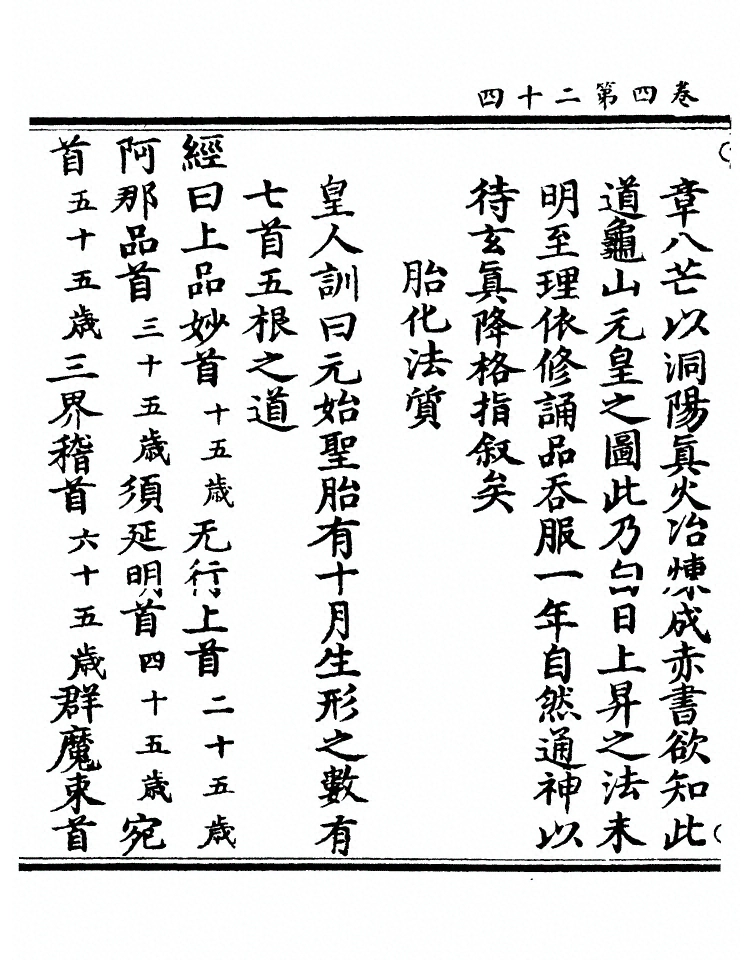 卷四第二十四
章八芒以洞陽眞火冶煉成赤書欲知此
道龜山元皇之圖此乃白日上昇之法未
明至理依修誦品吞服一年自然通神以
待玄眞降格指叙矣
胎化法質
皇人訓曰元始聖胎有十月生形之數有
七首五根之道
經曰上品妙首十五歲无行上首二十五歲
阿那品首三十五歲須延明首四十五歲宛
首五十五歲三界稽首六十五歲群魔束首